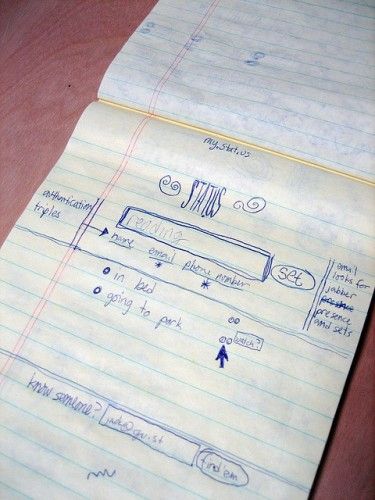 my.stat.us
STATUS
authentication
triples
reading
set
name email phone number
in bed
going to park
watch?
email
looks for
jabber
presence
and sets
know someone?
find em